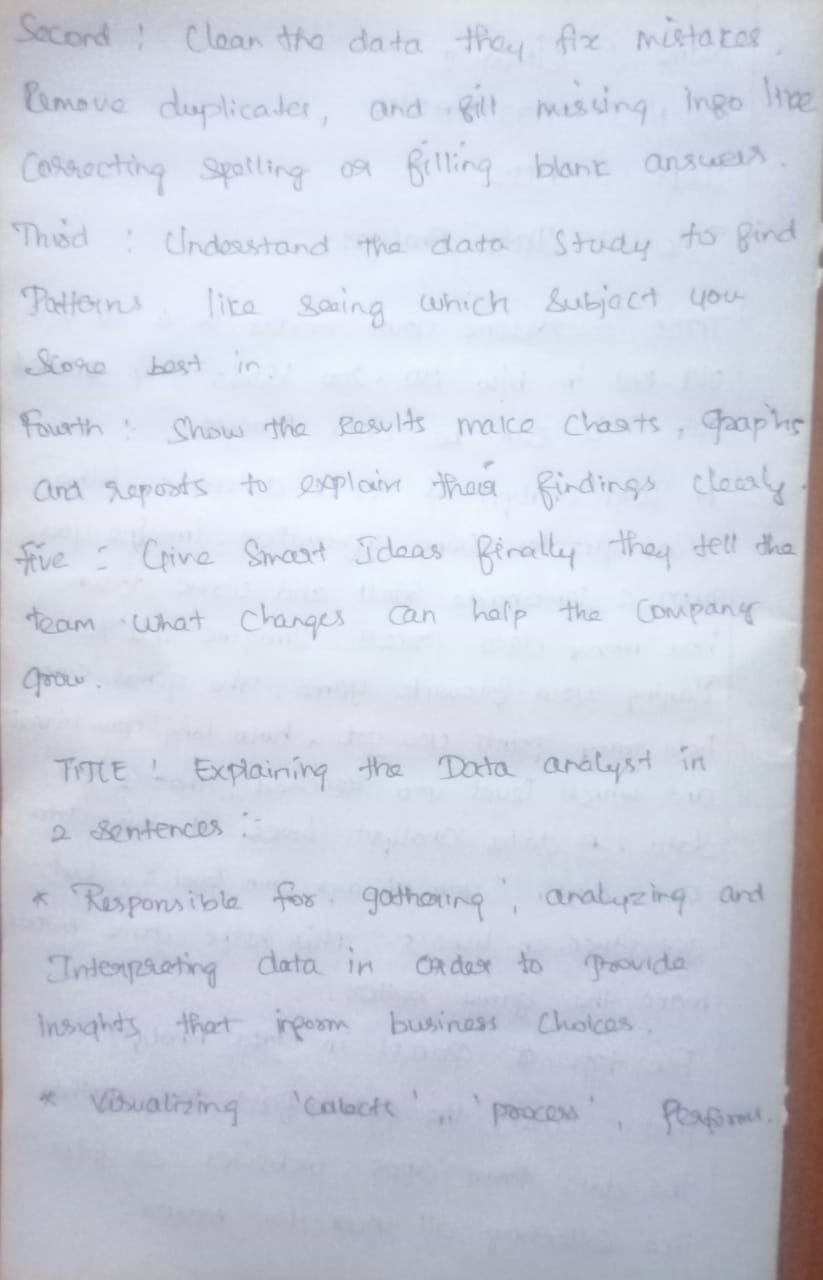 Second : Clean the data they fix mistakes,
Remove duplicates, and fill missing info like
Correcting spelling or filling blank answers.
Third : Understand the data Study to find
Patterns like seeing which subject you
Score best in
Fourth : Show the Results make charts, Graphs
and reports to explain their findings clearly.
five : Give Smart Ideas finally they tell the
team what changes can help the Company
grow.
TITLE : Explaining the Data analyst in
2 sentences :-
* Responsible for gathering, analyzing and
Interpreting data in order to Provide
Insights that inform business choices.
* Visualizing 'collects', 'process', Performs.